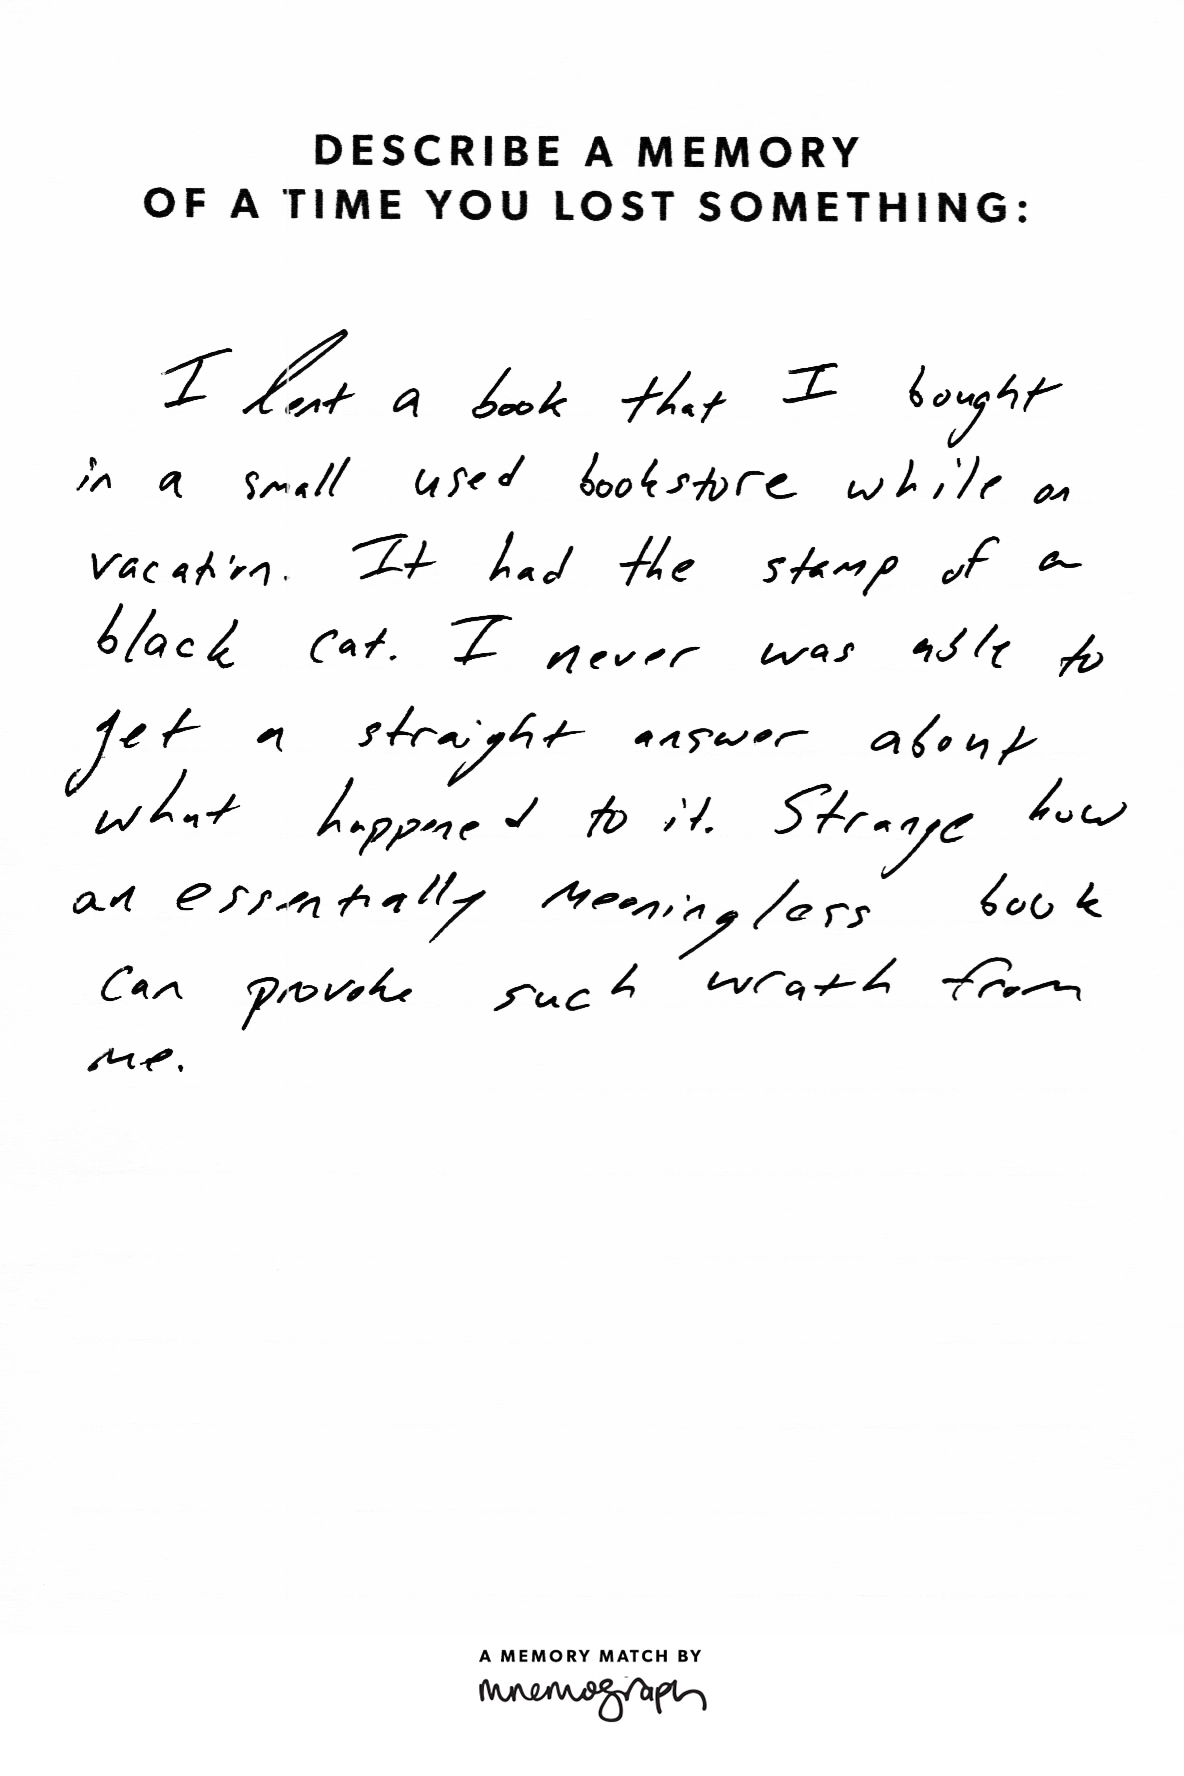 DESCRIBE A MEMORY
OF A TIME YOU LOST SOMETHING:
I lent a book that I bought
in a small used bookstore while on
vacation. It had the stamp of a
black cat. I never was able to
get a straight answer about
what happened to it. Strange how
an essentially meaningless book
can provoke such wrath from
me.
A MEMORY MATCH BY
mnemograph